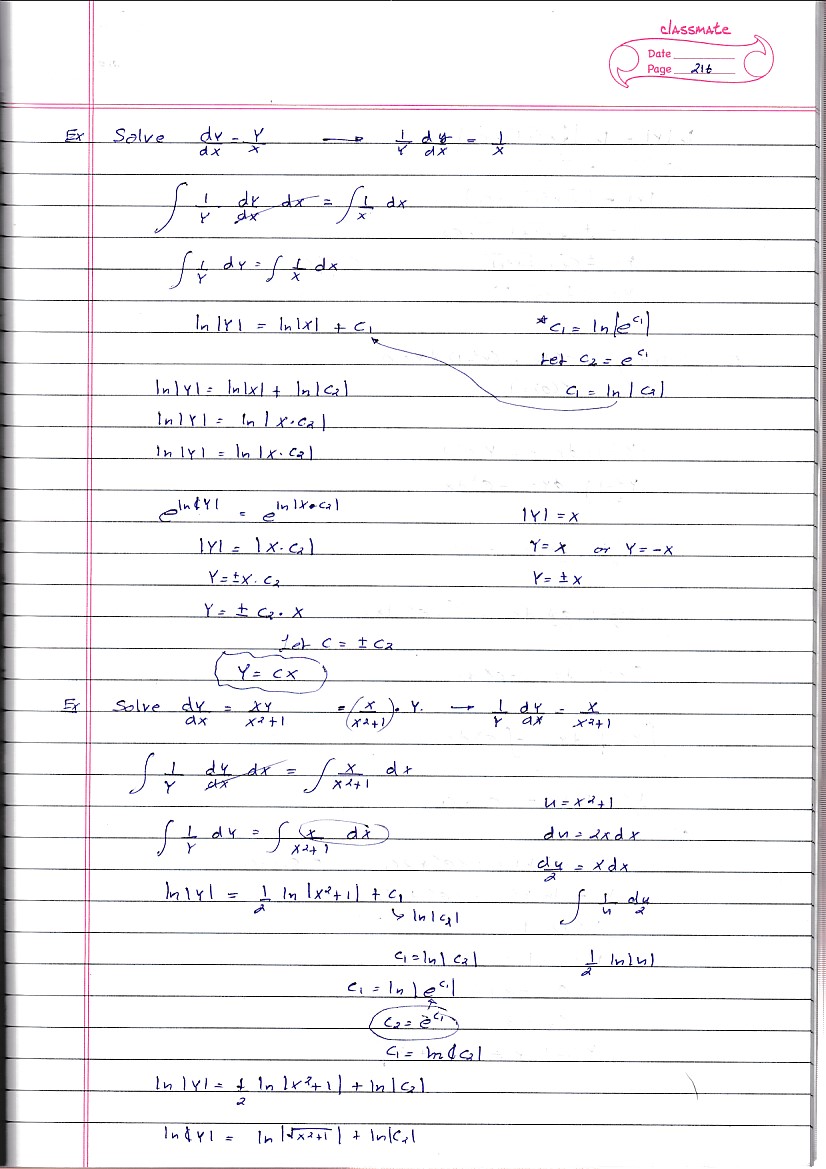 classmate
Date
Page 216
Ex Solve dy/dx = y/x → 1/y dy/dx = 1/x
∫ 1/y dy/dx dx = ∫ 1/x dx
∫ 1/y dy = ∫ 1/x dx
ln|y| = ln|x| + c₁ *c₁ = ln|e^c₁|
Let c₂ = e^c₁
ln|y| = ln|x| + ln|c₂| c₁ = ln|c₂|
ln|y| = ln|x·c₂|
ln|y| = ln|x·c₂|
e^ln|y| = e^ln|x·c₂| |y| = x
|y| = |x·c₂| y = x or y = -x
y = ±x·c₂ y = ±x
y = ± c₂·x
Let c = ±c₂
y = cx
Ex Solve dy/dx = xy/x²+1 = (x/x²+1)·y. → 1/y dy/dx = x/x²+1
∫ 1/y dy/dx dx = ∫ x/x²+1 dx
u = x²+1
∫ 1/y dy = ∫ x/x²+1 dx du = 2xdx
du/2 = xdx
ln|y| = 1/2 ln|x²+1| + c₁ ∫ 1/u du/2
↳ ln|c₂|
c₁ = ln|c₂| 1/2 ln|u|
c₁ = ln|e^c₁|
c₂ = e^c₁
c₁ = ln|c₂|
ln|y| = 1/2 ln|x²+1| + ln|c₂|
ln|y| = ln|√x²+1| + ln|c₂|